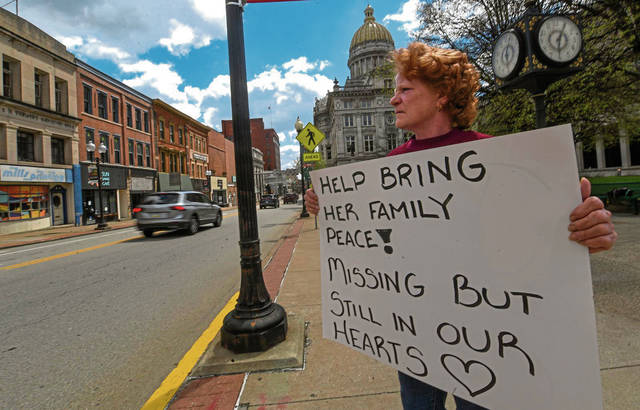 HELP BRING
HER FAMILY
PEACE!
MISSING BUT
STILL IN OUR
HEARTS ♡
AHEAD